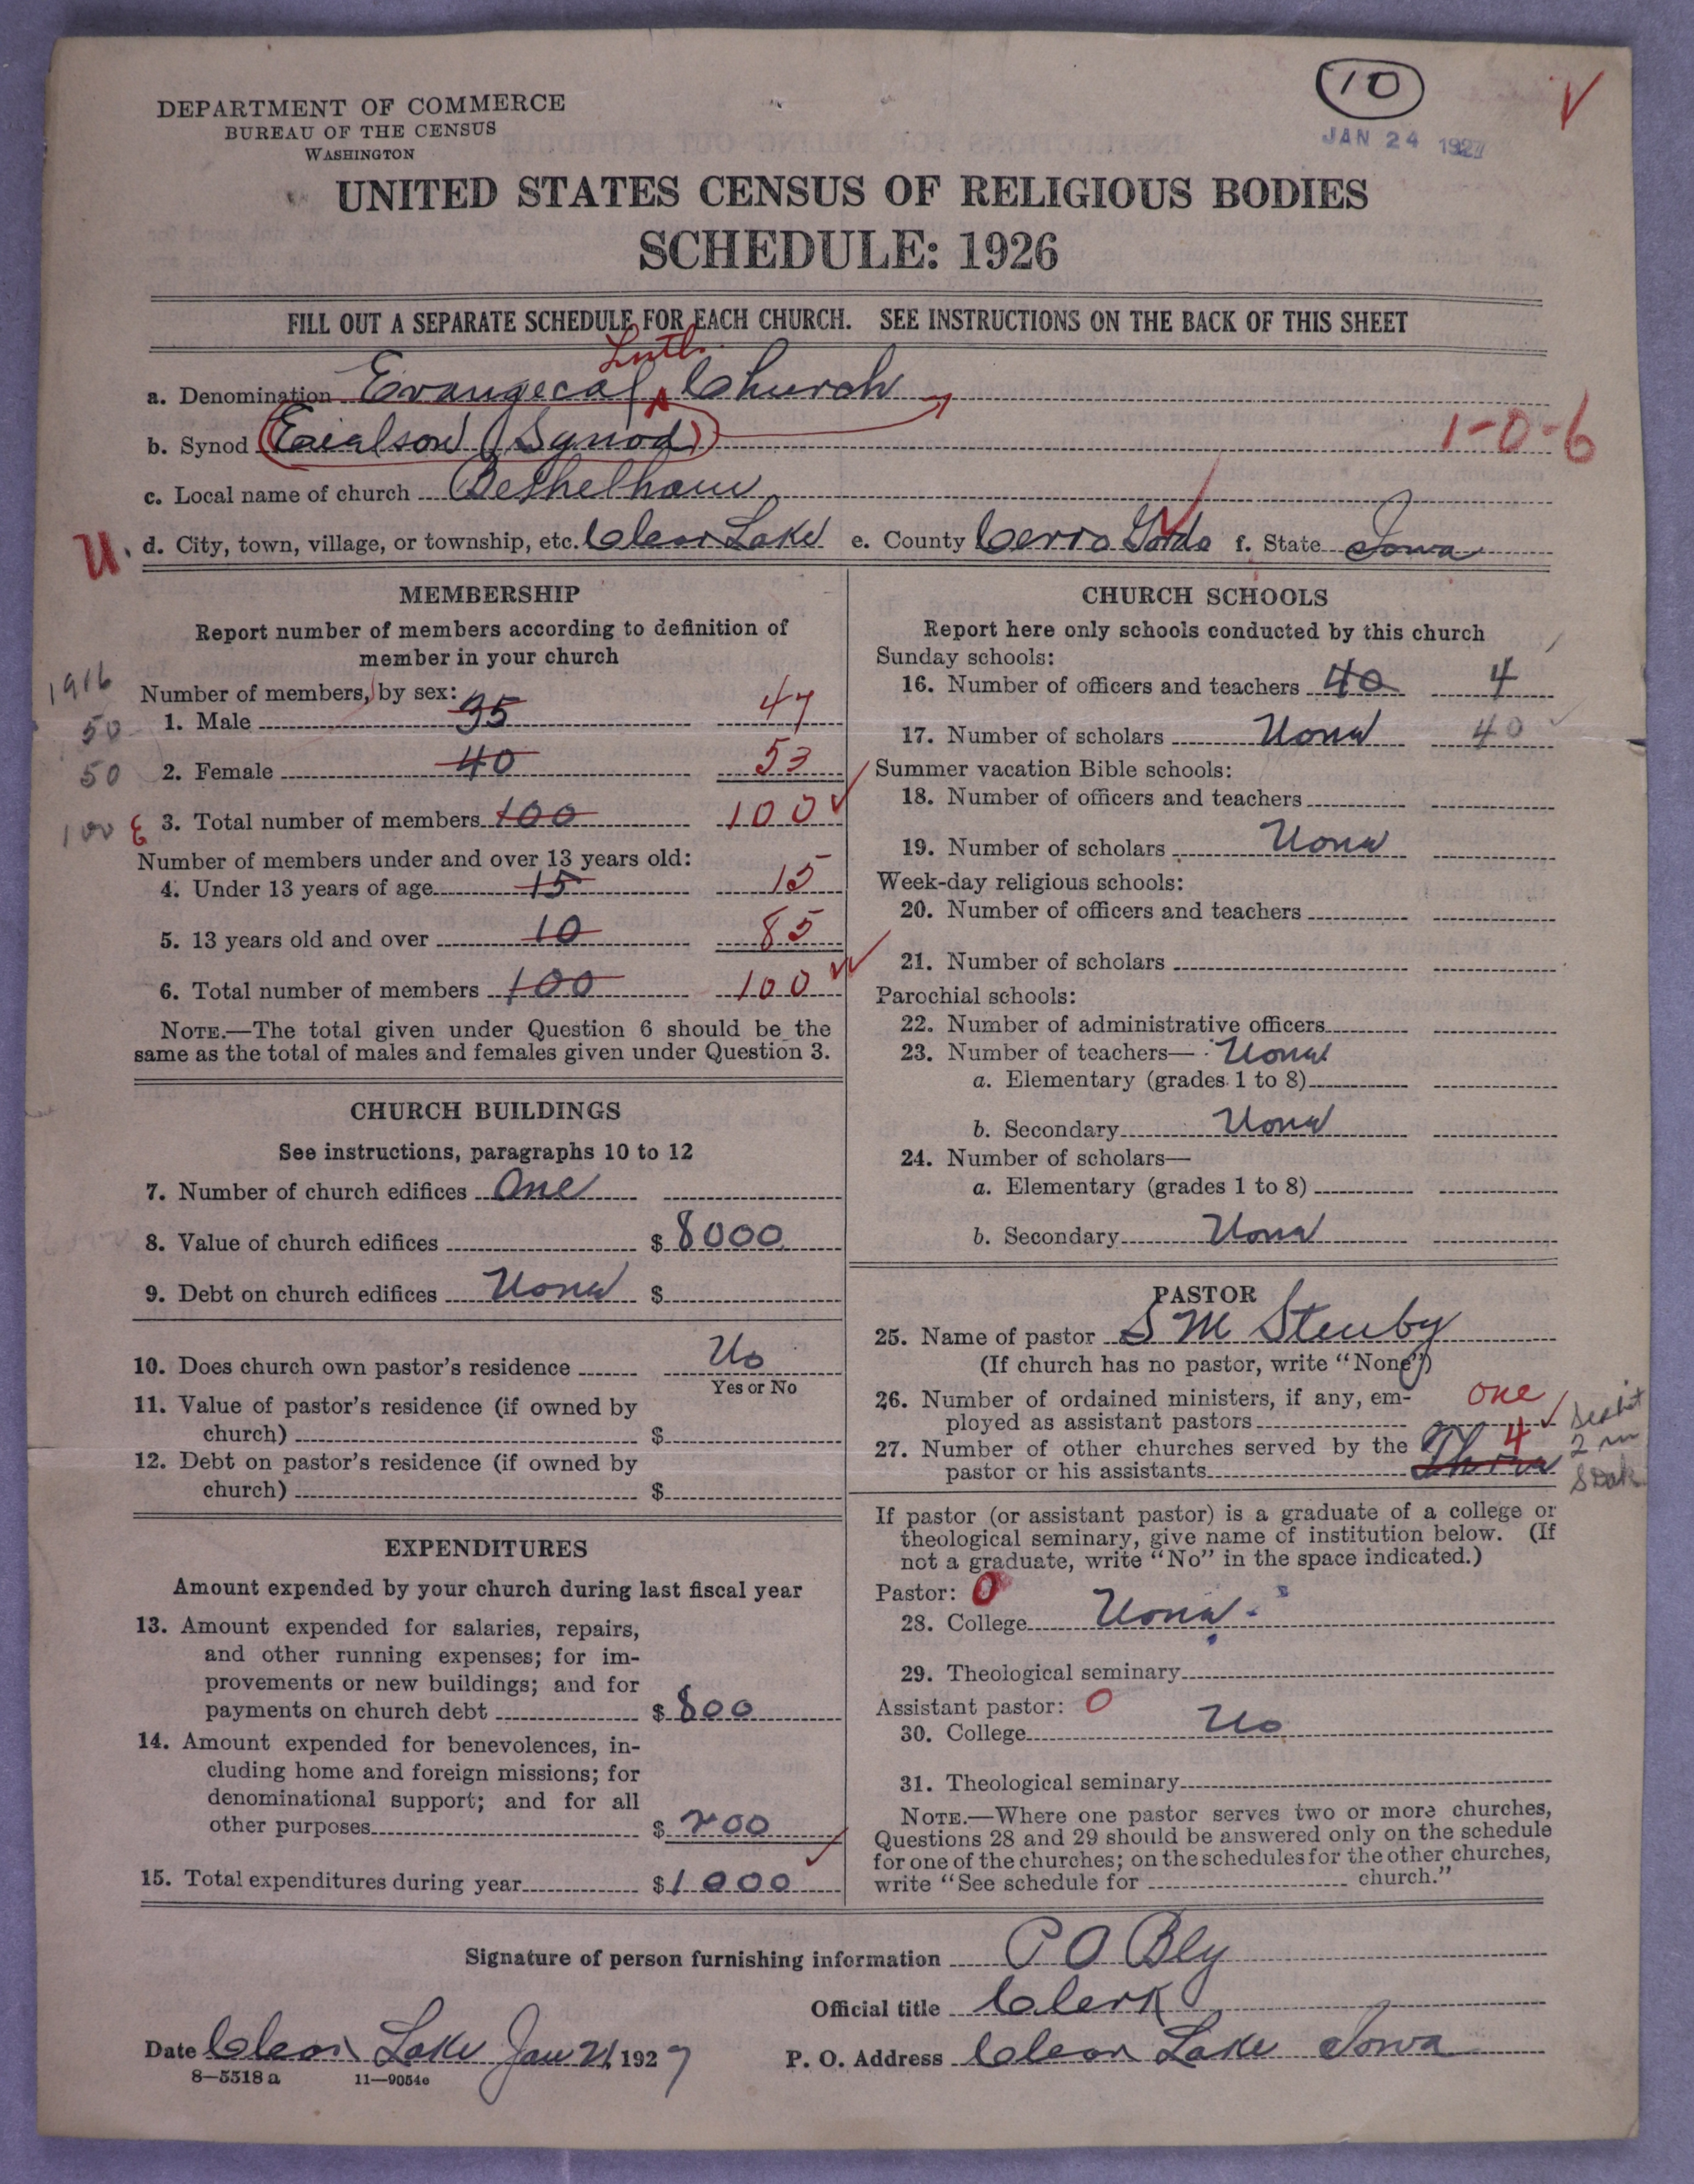 10
JAN 24 1927
DEPARTMENT OF COMMERCE
BUREAU OF THE CENSUS
WASHINGTON
UNITED STATES CENSUS OF RELIGIOUS BODIES
SCHEDULE: 1926
FILL OUT A SEPARATE SCHEDULE FOR EACH CHURCH. SEE INSTRUCTIONS ON THE BACK OF THIS SHEET
Luth.
a. Denomination Evangecal Church
b. Synod Eielson (Synod) 1-0-6
c. Local name of church Bethelham
U. d. City, town, village, or township, etc. Clear Lake e. County Cerro Gordo f. State Iowa
MEMBERSHIP
Report number of members according to definition of
member in your church
1916
Number of members, by sex:
50 1. Male 35 47
50 2. Female 40 53
100 3. Total number of members 100 100
Number of members under and over 13 years old:
4. Under 13 years of age 15 15
5. 13 years old and over 10 85
6. Total number of members 100 100
NOTE.—The total given under Question 6 should be the
same as the total of males and females given under Question 3.
CHURCH BUILDINGS
See instructions, paragraphs 10 to 12
7. Number of church edifices One
8. Value of church edifices $ 8000
9. Debt on church edifices None $
10. Does church own pastor's residence No
Yes or No
11. Value of pastor's residence (if owned by
church) $
12. Debt on pastor's residence (if owned by
church) $
EXPENDITURES
Amount expended by your church during last fiscal year
13. Amount expended for salaries, repairs,
and other running expenses; for im-
provements or new buildings; and for
payments on church debt $ 800
14. Amount expended for benevolences, in-
cluding home and foreign missions; for
denominational support; and for all
other purposes $ 200
15. Total expenditures during year $ 1000
CHURCH SCHOOLS
Report here only schools conducted by this church
Sunday schools:
16. Number of officers and teachers 40 4
17. Number of scholars None 40
Summer vacation Bible schools:
18. Number of officers and teachers
19. Number of scholars None
Week-day religious schools:
20. Number of officers and teachers
21. Number of scholars
Parochial schools:
22. Number of administrative officers
23. Number of teachers— None
a. Elementary (grades 1 to 8)
b. Secondary None
24. Number of scholars—
a. Elementary (grades 1 to 8)
b. Secondary None
PASTOR
25. Name of pastor S M Stenby
(If church has no pastor, write "None")
26. Number of ordained ministers, if any, em-
ployed as assistant pastors one
27. Number of other churches served by the
pastor or his assistants 4
If pastor (or assistant pastor) is a graduate of a college or
theological seminary, give name of institution below. (If
not a graduate, write "No" in the space indicated.)
Pastor: 0
28. College None
29. Theological seminary
Assistant pastor: 0
30. College No
31. Theological seminary
NOTE.—Where one pastor serves two or more churches,
Questions 28 and 29 should be answered only on the schedule
for one of the churches; on the schedules for the other churches,
write "See schedule for church."
Signature of person furnishing information P O Bly
Official title Clerk
Date Clear Lake Jan 21, 1927 P. O. Address Clear Lake Iowa
8—5518 a 11—9054e